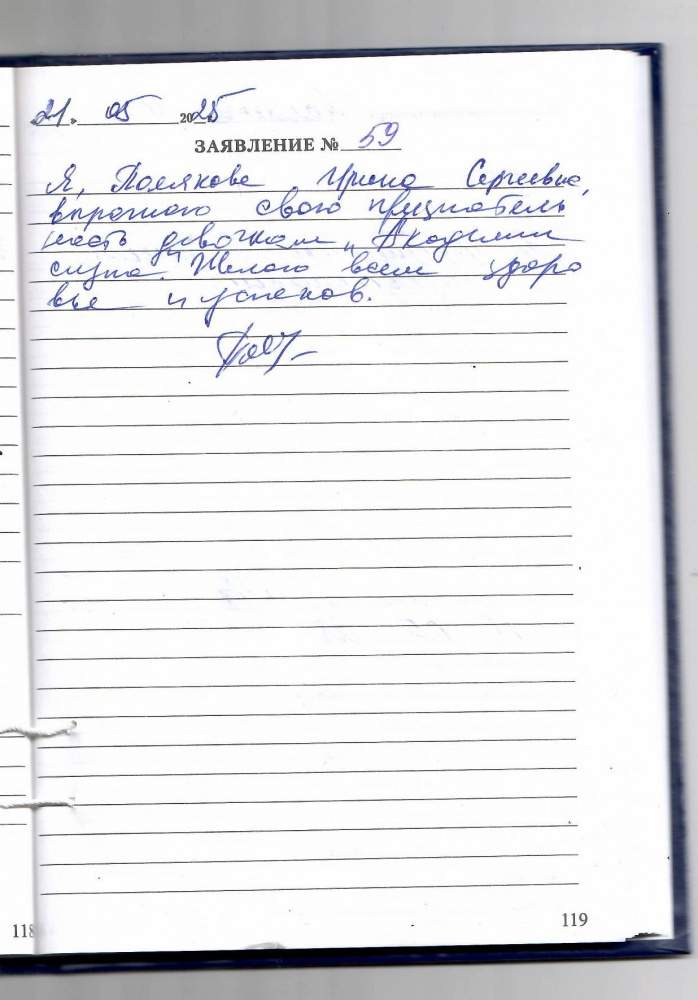 21. 05 2025
ЗАЯВЛЕНИЕ № 59
Я, Полякова Ирина Сергеевна,
выражаю свою признатель
ность девочкам „Академии
слуха". Желаю всем здоро
вье и успехов.
118
119